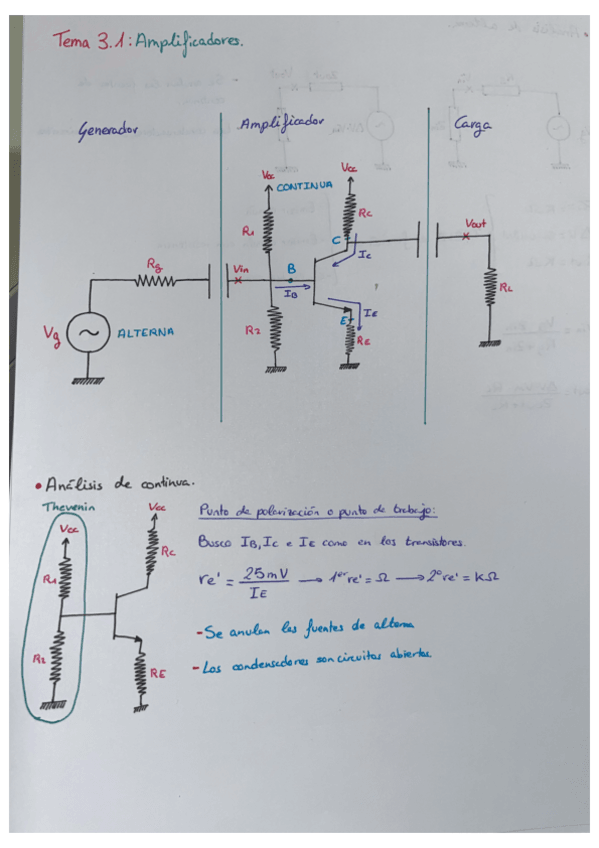 Tema 3.1: Amplificadores.
Generador
Amplificador
Carga
Vcc
CONTINUA
Vcc
R1
Rc
C
Ic
Vout
Rg
Vin
B
IB
RL
Vg
ALTERNA
R2
E
IE
RE
• Análisis de continua.
Thevenin
Vcc
Vcc
R1
Rc
R2
RE
Punto de polarización o punto de trabajo:
Busco IB, Ic e IE como en los transistores.
re' = 25mV / IE → 1er re' = Ω → 2º re' = kΩ
- Se anulan las fuentes de alterna
- Los condensadores son circuitos abiertos